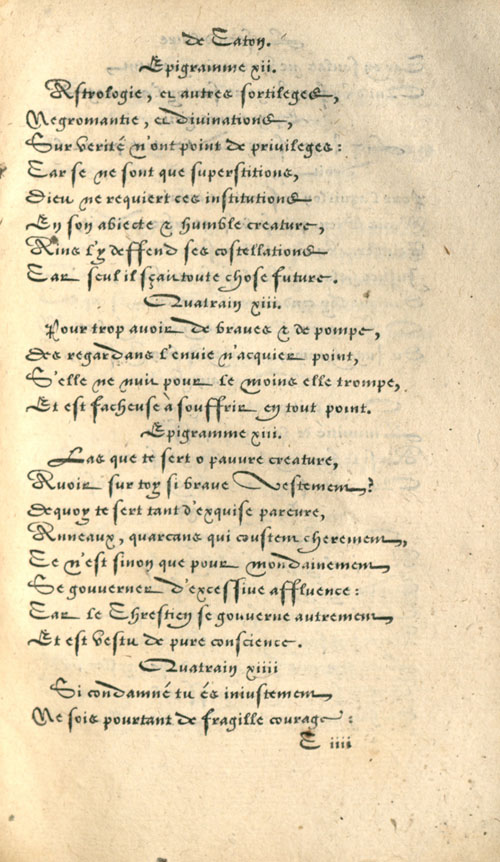 de Caton.
Epigramme xii.
Astrologie, et autres sortileges,
Negromantie, et divinations,
Sur verité n'ont point de privileges:
Car se ne sont que superstitions,
Dieu ne requiert ces institutions
En son abiecte & humble creature,
Ains l'y deffend ses costellations
Car seul il sçait toute chose future.
Quatrain xiii.
Pour trop avoir de braves & de pompe,
des regardans l'envie n'acquier point,
S'elle ne nuit pour le moins elle trompe,
Et est facheuse à souffrir en tout point.
Epigramme xiii.
Las que te sert o pauvre creature,
Avoir sur toy si brave Vestement?
dequoy te sert tant d'exquise pareure,
Anneaux, quarcans qui coustent cherement,
Ce n'est sinon que pour mondainement
Se gouverner d'excessive affluence:
Car le Chrestien se gouverne autrement
Et est vestu de pure conscience.
Quatrain xiiii
Si condamné tu és iniustement
Ne sois pourtant de fragille courage:
C iiii